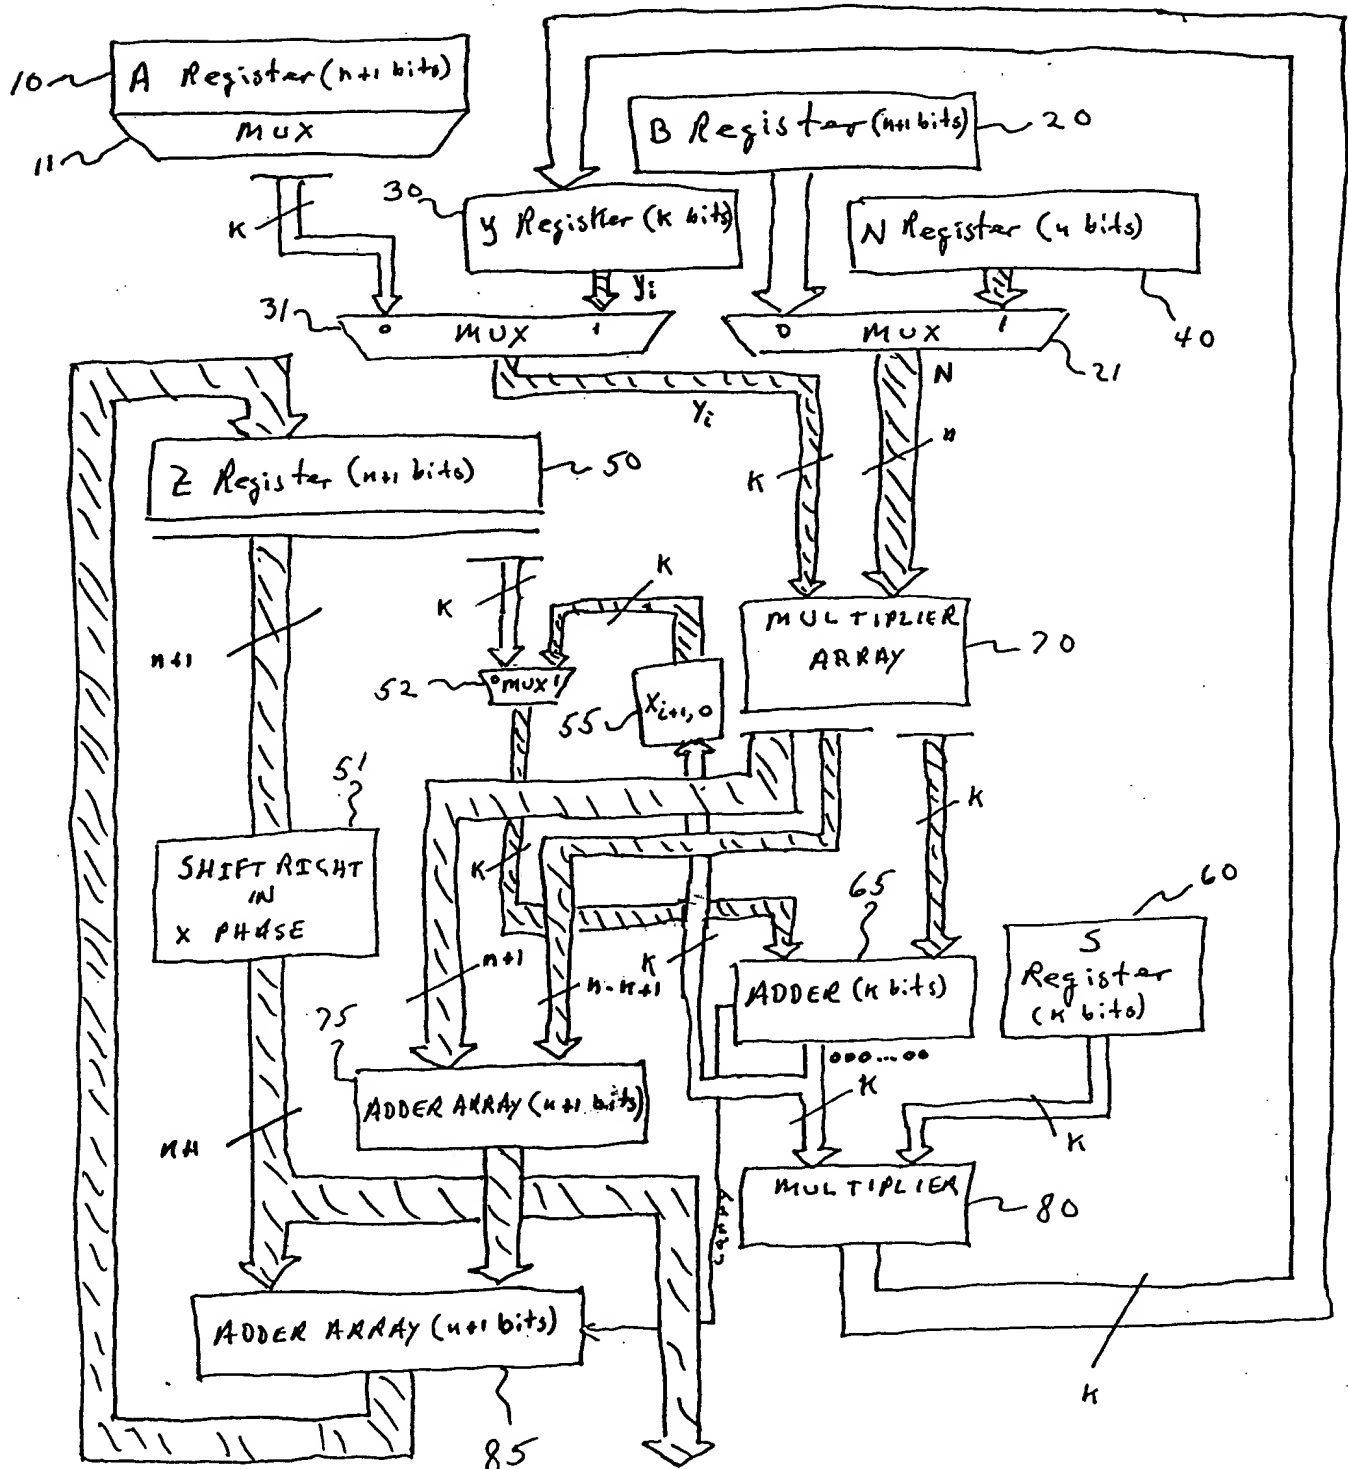 10
A Register (n+1 bits)
MUX
11
B Register (n+1 bits)
20
30
y Register (k bits)
N Register (n bits)
40
K
yi
31
0 MUX 1
0 MUX 1
21
N
Yi
Z Register (n+1 bits)
50
K
n
K
K
n+1
MULTIPLIER
ARRAY
70
52
0 MUX 1
55
Xi+1,0
51
K
SHIFT RIGHT
IN
X PHASE
K
65
60
S
Register
(K bits)
n+1
K
n-k+1
ADDER (K bits)
75
000...00
K
ADDER ARRAY (n+1 bits)
K
n+1
MULTIPLIER
80
CARRY
ADDER ARRAY (n+1 bits)
K
85